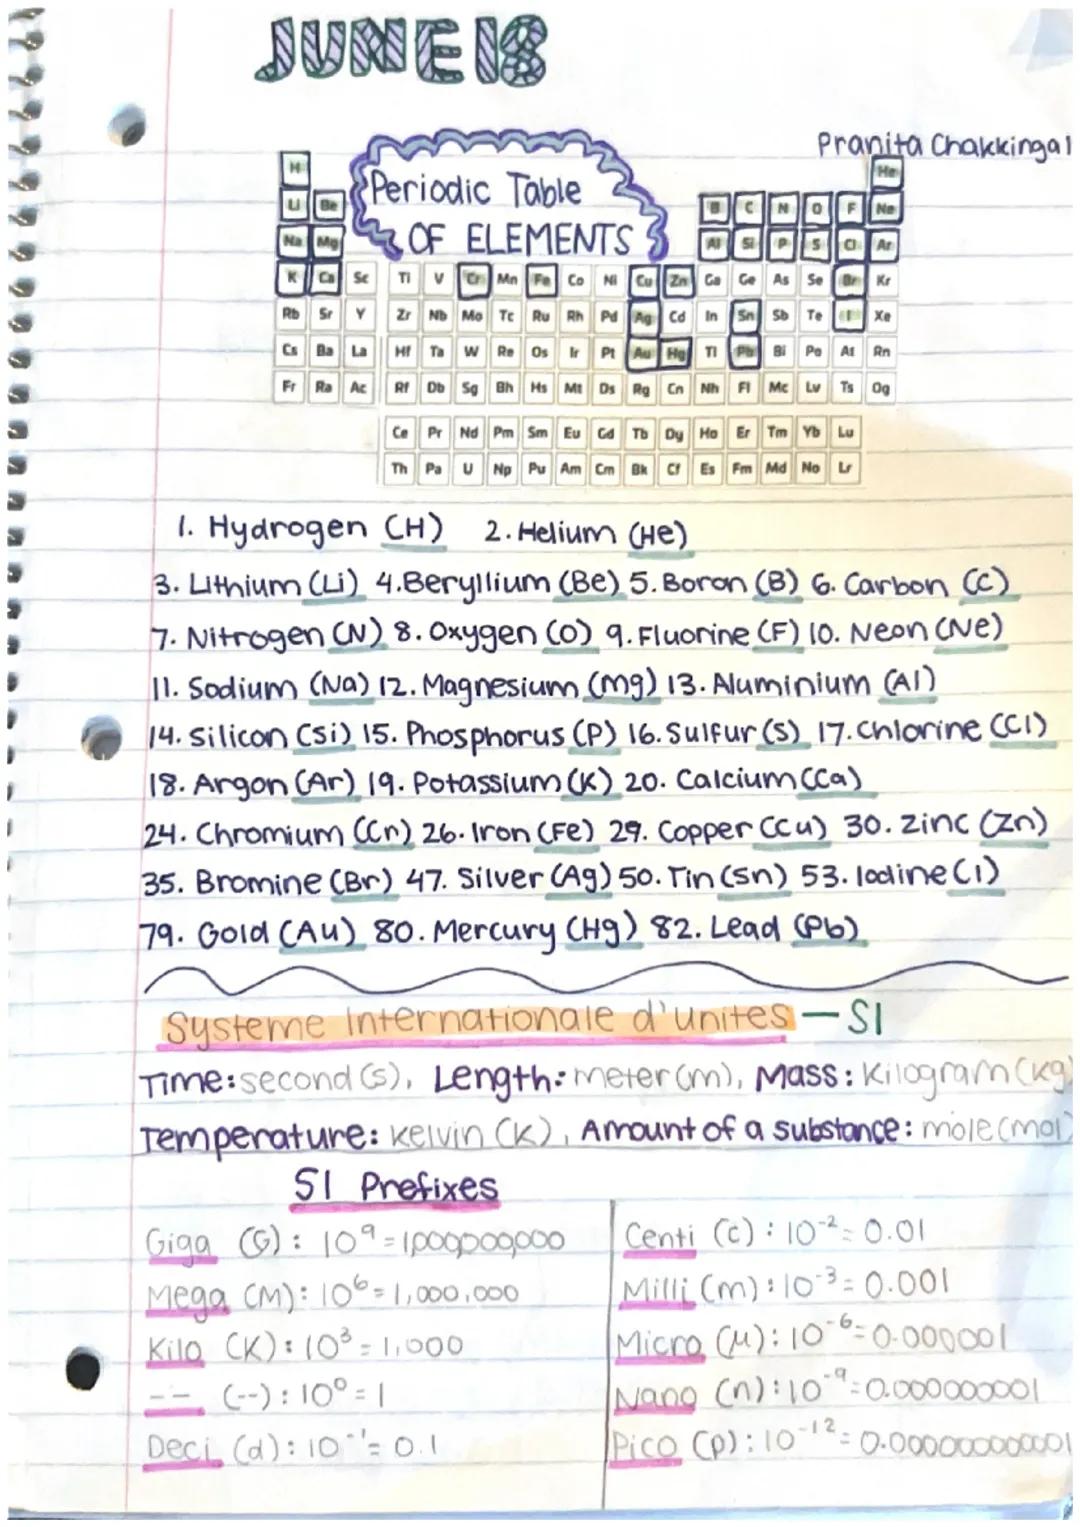 JUNE 18
Pranita Chakkingal
Periodic Table
OF ELEMENTS
H He
Li Be B C N O F Ne
Na Mg Al Si P S Cl Ar
K Ca Sc Ti V Cr Mn Fe Co Ni Cu Zn Ga Ge As Se Br Kr
Rb Sr Y Zr Nb Mo Tc Ru Rh Pd Ag Cd In Sn Sb Te I Xe
Cs Ba La Hf Ta W Re Os Ir Pt Au Hg Tl Pb Bi Po At Rn
Fr Ra Ac Rf Db Sg Bh Hs Mt Ds Rg Cn Nh Fl Mc Lv Ts Og
Ce Pr Nd Pm Sm Eu Gd Tb Dy Ho Er Tm Yb Lu
Th Pa U Np Pu Am Cm Bk Cf Es Fm Md No Lr
1. Hydrogen (H) 2. Helium (He)
3. Lithium (Li) 4. Beryllium (Be) 5. Boron (B) 6. Carbon (C)
7. Nitrogen (N) 8. Oxygen (O) 9. Fluorine (F) 10. Neon (Ne)
11. Sodium (Na) 12. Magnesium (Mg) 13. Aluminium (Al)
14. Silicon (Si) 15. Phosphorus (P) 16. Sulfur (S) 17. Chlorine (Cl)
18. Argon (Ar) 19. Potassium (K) 20. Calcium (Ca)
24. Chromium (Cr) 26. Iron (Fe) 29. Copper (Cu) 30. Zinc (Zn)
35. Bromine (Br) 47. Silver (Ag) 50. Tin (Sn) 53. Iodine (I)
79. Gold (Au) 80. Mercury (Hg) 82. Lead (Pb)
Systeme Internationale d'unites — SI
Time: second (s), Length: meter (m), Mass: Kilogram (kg)
Temperature: Kelvin (K), Amount of a substance: mole (mol)
SI Prefixes
Giga (G): 10⁹ = 1,000,000,000
Mega (M): 10⁶ = 1,000,000
Kilo (K): 10³ = 1,000
-- (--): 10⁰ = 1
Deci (d): 10⁻¹ = 0.1
Centi (c): 10⁻² = 0.01
Milli (m): 10⁻³ = 0.001
Micro (μ): 10⁻⁶ = 0.000001
Nano (n): 10⁻⁹ = 0.000000001
Pico (p): 10⁻¹² = 0.000000000001